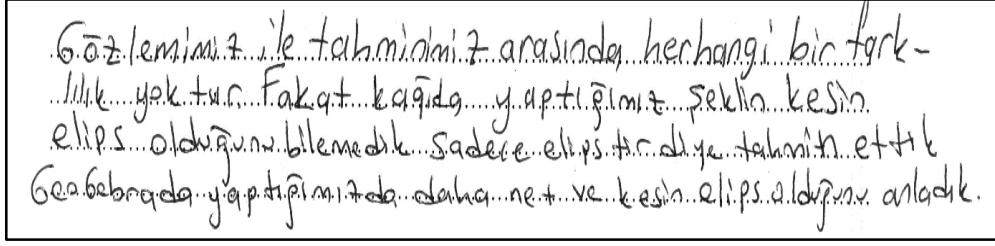 Gözlemimiz ile tahminimiz arasında herhangi bir fark-
lılık yoktur. Fakat kağıda yaptığımız şeklin kesin
elips olduğunu bilemedik sadece elipstir diye tahmin ettik
GeoGebrada yaptığımızda daha net ve kesin elips olduğunu anladık.